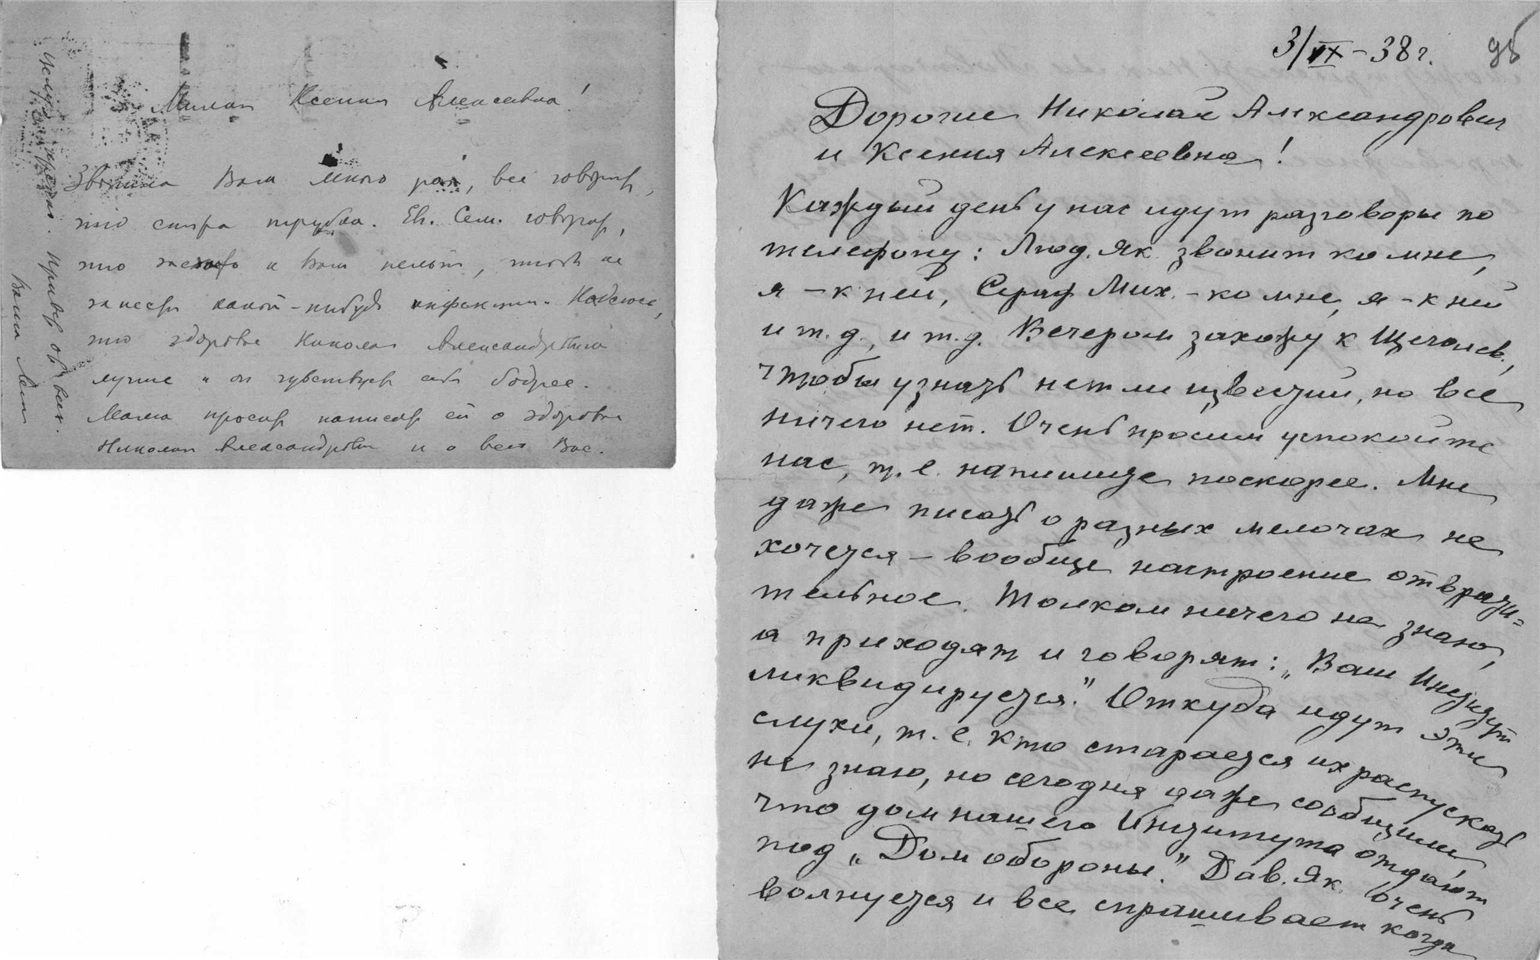 Милая Ксения Алексеевна!
Звонила Вам много раз, все говорят,
что снята трубка. Ев. Сем. говорит,
что и к Вам нельзя, чтоб не
занести какой-нибудь инфекции. Надеюсь,
что здоровье Николая Александровича
лучше и он чувствует себя бодрее.
Мама просит написать ей о здоровье
Николая Александровича и о всех Вас.
Целую крепко. Привет от всех.
Ваша
3/IX-38 г.
95
Дорогие Николай Александрович
и Ксения Алексеевна!
Каждый день у нас идут разговоры по
телефону: Люд. Як. звонит ко мне,
я – к ней, Сераф. Мих. – ко мне, я – к ней
и т.д., и т.д. Вечером захожу к Щеголев.,
чтобы узнать нет ли известий, но все
ничего нет. Очень просим успокойте
нас, т.е. напишите поскорее. Мне
даже писать о разных мелочах не
хочется – вообще настроение отврати-
тельное. Толком ничего не знаю,
а приходят и говорят: „Ваш Институт
ликвидируется." Откуда идут эти
слухи, т.е. кто старается их распускать
не знаю, но сегодня даже сообщили
что дом нашего Института отдают
под „Дом обороны." Дав. Як. очень
волнуется и все спрашивает когда